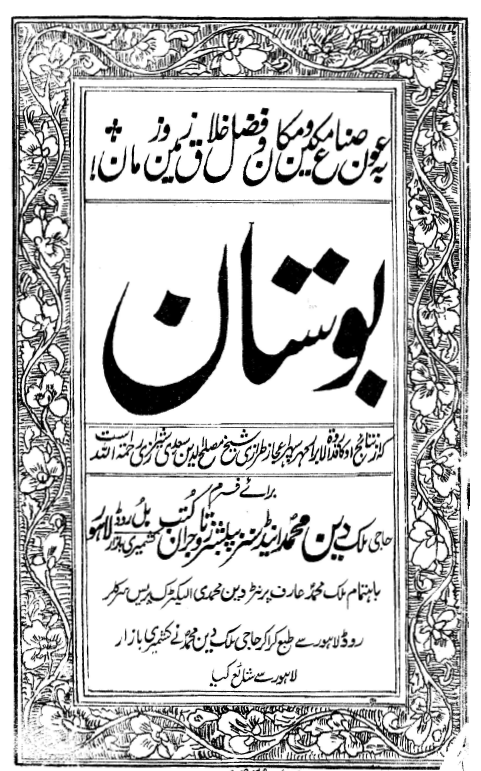 بہ عون صناع مکین و مکان و فضل خلاق زمین و زمان!
بوستان
کہ از نتائج افکار قدوۃ الابرار سعدی شیرازی رحمۃ اللہ است شیخ مصلح الدین
برائے فرم
حاجی ملک دین محمد اینڈ سنز پبلشرز و تاجران کتب کشمیری بازار بل روڈ لاہور
باہتمام ملک محمد عارف پرنٹر دین محمدی الیکٹرک پریس سرکلر
روڈ لاہور سے طبع کرا کر حاجی ملک دین محمد نے کشمیری بازار
لاہور سے شائع کیا